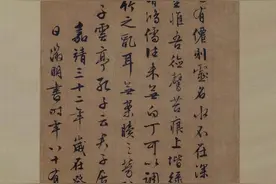 有僊則靈名水不在深
惟吾德馨苔痕上堦綠
有鴻儒往來無白丁可以調
竹之亂耳無案牘之勞
子雲亭孔子云夫子居
嘉靖三十二年歲在
日徵明書時年八十有